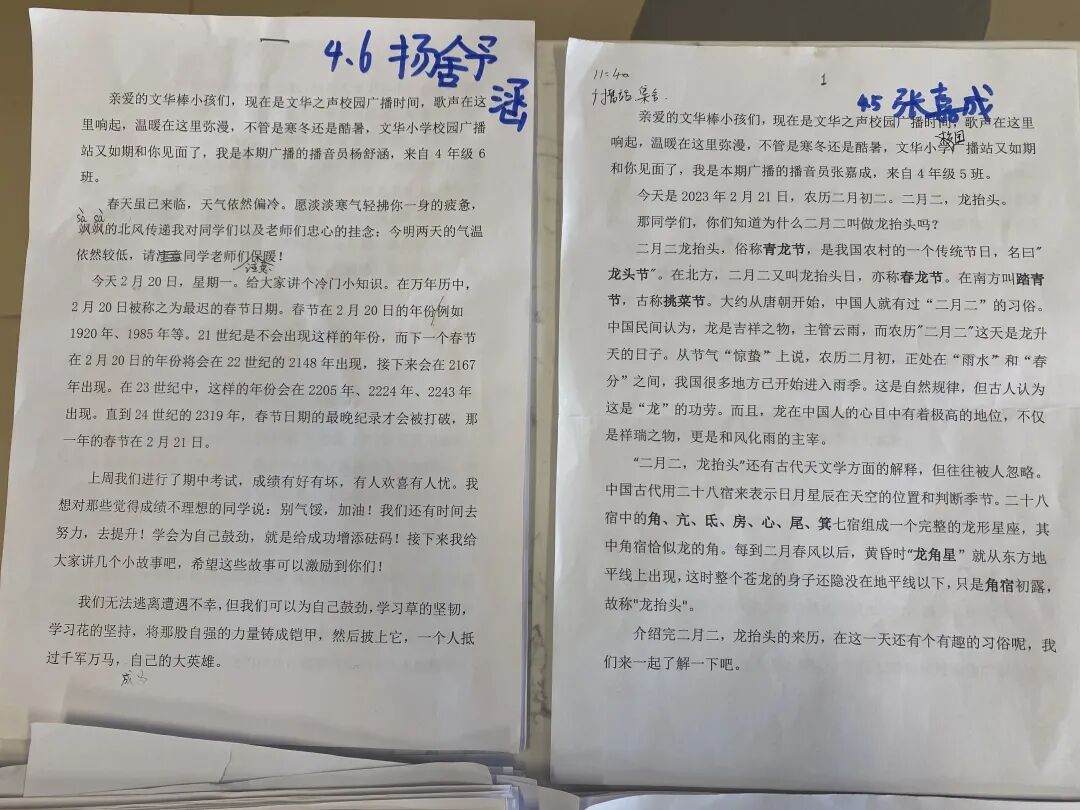 4.6 杨舒涵
亲爱的文华棒小孩们，现在是文华之声校园广播时间，歌声在这
里响起，温暖在这里弥漫，不管是寒冬还是酷暑，文华小学校园广播
站又如期和你见面了，我是本期广播的播音员杨舒涵，来自 4 年级 6
班。
春天虽已来临，天气依然偏冷。愿淡淡寒气轻拂你一身的疲惫，
sà sà
飒飒的北风传递我对同学们以及老师们忠心的挂念；今明两天的气温
依然较低，请注意同学老师们保暖！
注意
今天 2 月 20 日，星期一。给大家讲个冷门小知识。在万年历中，
2 月 20 日被称之为最迟的春节日期。春节在 2 月 20 日的年份例如
1920 年、1985 年等。21 世纪是不会出现这样的年份，而下一个春节
在 2 月 20 日的年份将会在 22 世纪的 2148 年出现，接下来会在 2167
年出现。在 23 世纪中，这样的年份会在 2205 年、2224 年、2243 年
出现。直到 24 世纪的 2319 年，春节日期的最晚纪录才会被打破，那
一年的春节在 2 月 21 日。
上周我们进行了期中考试，成绩有好有坏，有人欢喜有人忧。我
想对那些觉得成绩不理想的同学说：别气馁，加油！我们还有时间去
努力，去提升！学会为自己鼓劲，就是给成功增添砝码！接下来我给
大家讲几个小故事吧，希望这些故事可以激励到你们！
我们无法逃离遭遇不幸，但我们可以为自己鼓劲，学习草的坚韧，
学习花的坚持，将那股自强的力量铸成铠甲，然后披上它，一个人抵
过千军万马，自己的大英雄。
成为
11:40
广播站集合.
1
4.5 张嘉成
亲爱的文华棒小孩们，现在是文华之声校园广播时间，歌声在这里
响起，温暖在这里弥漫，不管是寒冬还是酷暑，文华小学广播站又如期
校园
和你见面了，我是本期广播的播音员张嘉成，来自 4 年级 5 班。
今天是 2023 年 2 月 21 日，农历二月初二。二月二，龙抬头。
那同学们，你们知道为什么二月二叫做龙抬头吗？
二月二龙抬头，俗称青龙节，是我国农村的一个传统节日，名曰"
龙头节"。在北方，二月二又叫龙抬头日，亦称春龙节。在南方叫踏青
节，古称挑菜节。大约从唐朝开始，中国人就有过“二月二”的习俗。
中国民间认为，龙是吉祥之物，主管云雨，而农历"二月二"这天是龙升
天的日子。从节气“惊蛰”上说，农历二月初，正处在“雨水”和“春
分”之间，我国很多地方已开始进入雨季。这是自然规律，但古人认为
这是“龙”的功劳。而且，龙在中国人的心目中有着极高的地位，不仅
是祥瑞之物，更是和风化雨的主宰。
“二月二，龙抬头”还有古代天文学方面的解释，但往往被人忽略。
中国古代用二十八宿来表示日月星辰在天空的位置和判断季节。二十八
宿中的角、亢、氐、房、心、尾、箕七宿组成一个完整的龙形星座，其
中角宿恰似龙的角。每到二月春风以后，黄昏时“龙角星”就从东方地
平线上出现，这时整个苍龙的身子还隐没在地平线以下，只是角宿初露，
故称"龙抬头"。
介绍完二月二，龙抬头的来历，在这一天还有个有趣的习俗呢，我
们来一起了解一下吧。